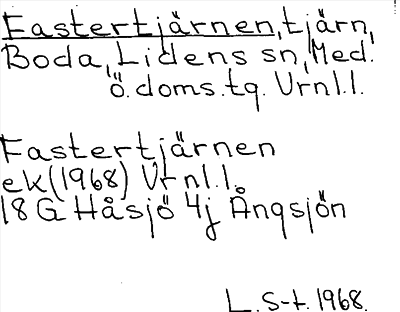 Fastertjärnen, tjärn,
Boda, Lidens sn, Med.
ö. doms.tg. Vrnl.l.
Fastertjärnen
ek (1968) Vrnl.l.
18 G Håsjö 4j Ångsjön
L. S-t. 1968.